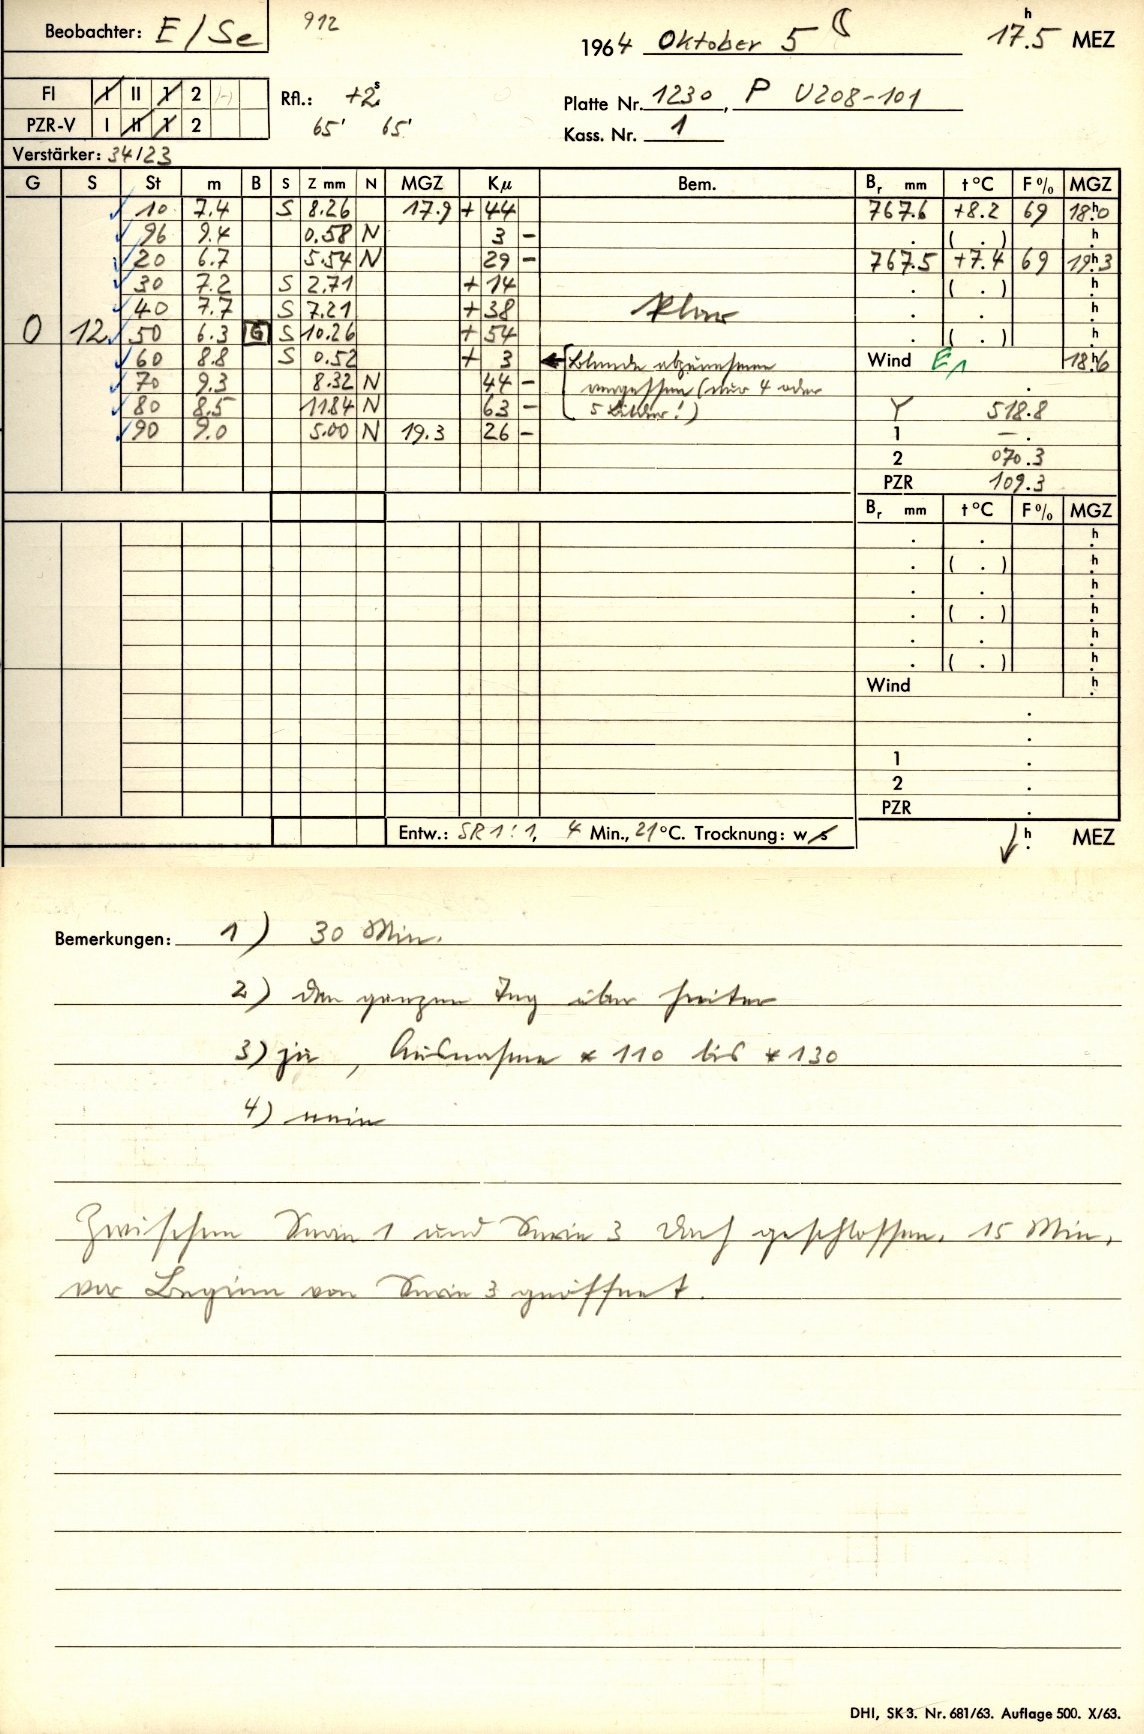 Beobachter: E/Se 912 1964 Oktober 5 ☾ 17.5 h MEZ
FI I II 1 2 (-) Rfl.: +2s
Platte Nr. 1230, P U208-101
PZR-V I II 1 2 65' 65' Kass. Nr. 1
Verstärker: 34/23
G S St m B S Z mm N MGZ Kμ Bem. Br mm t °C F % MGZ
10 7.4 S 8.26 17.9 + 44 767.6 +8.2 69 18h0
96 9.4 0.58 N 3 - . ( . ) h
20 6.7 5.54 N 29 - 767.5 +7.4 69 19h3
30 7.2 S 2.71 + 14 . ( . ) h
40 7.7 S 7.21 + 38 klar . . h
0 12 50 6.3 G S 10.26 + 54 ( . ) h
60 8.8 S 0.52 + 3 ← Blende abzunehmen Wind E1 18h6
70 9.3 8.32 N 44 - vergessen (nur 4 oder .
80 8.5 11.84 N 63 - 5 Bilder!) Y 518.8
90 9.0 5.00 N 19.3 26 - 1 — .
2 070.3
PZR 109.3
Br mm t °C F % MGZ
. . h
. ( . ) h
. . h
. ( . ) h
. . h
. ( . ) h
Wind h
.
.
1 .
2 .
PZR .
Entw.: SR 1:1, 4 Min., 21 °C. Trocknung: w/s ↓ h. MEZ
Bemerkungen: 1) 30 Min.
2) den ganzen Tag über heiter
3) ja, Ausnahme * 110 bis * 130
4) nein
Zwischen Serie 1 und Serie 3 Dach geschlossen. 15 Min.
vor Beginn von Serie 3 geöffnet.
DHI, SK 3. Nr. 681/63. Auflage 500. X/63.